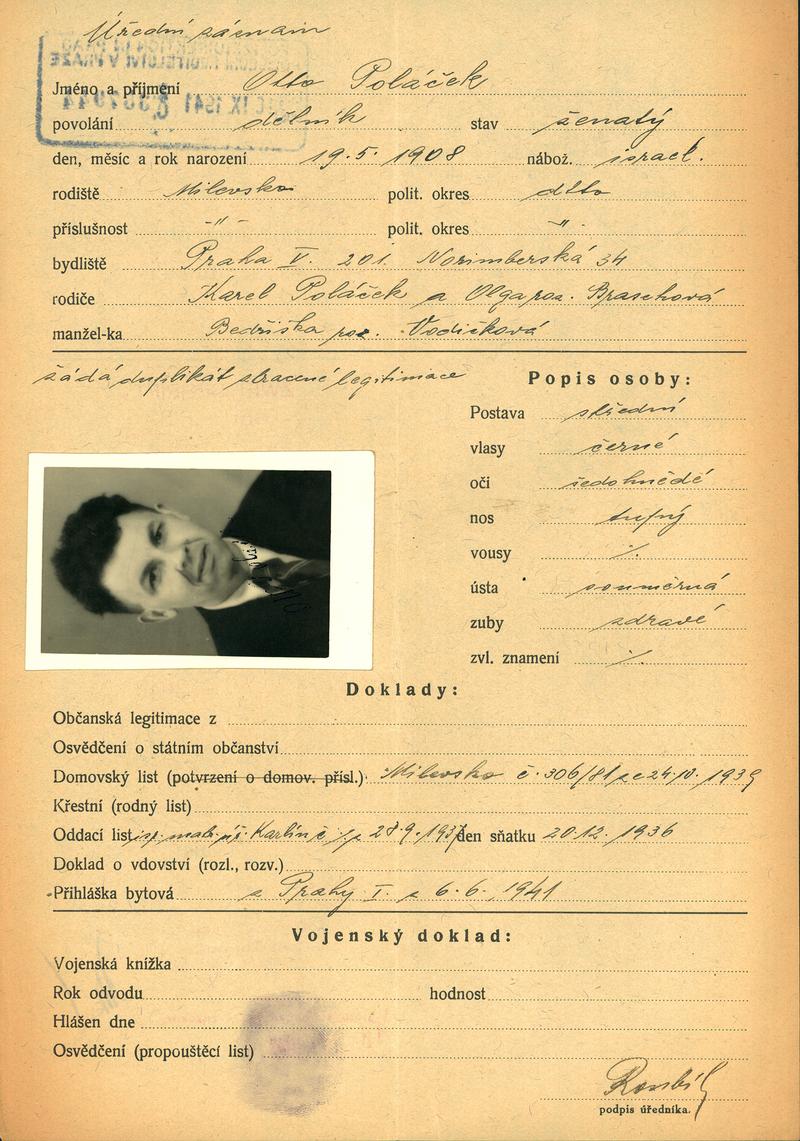 Úřední záznam
Jméno a příjmení Otto Poláček
povolání dělník stav ženatý
den, měsíc a rok narození 19. 5. 1908 nábož. israel.
rodiště Milevsko polit. okres dtto
příslušnost -"- polit. okres -"-
bydliště Praha V. 201. Norimberská 34
rodiče Karel Poláček a Olga roz. Braschová
manžel-ka Bedřiška roz. Vodičková
žádá duplikát ztracené legitimace
Popis osoby:
Postava střední
vlasy černé
oči šedohnědé
nos tupý
vousy ·/.
ústa souměrná
zuby zdravé
zvl. znamení ·/.
Doklady:
Občanská legitimace z
Osvědčení o státním občanství
Domovský list (potvrzení o domov. přísl.) Milevsko č. 306/81 ze 24. IV. 1939
Křestní (rodný list)
Oddací list Karlín č. 1937 den sňatku 20. 12. 1936
Doklad o vdovství (rozl., rozv.)
Přihláška bytová z Prahy I. z 6. 6. 1941
Vojenský doklad:
Vojenská knížka
Rok odvodu hodnost
Hlášen dne
Osvědčení (propouštěcí list)
podpis úředníka.